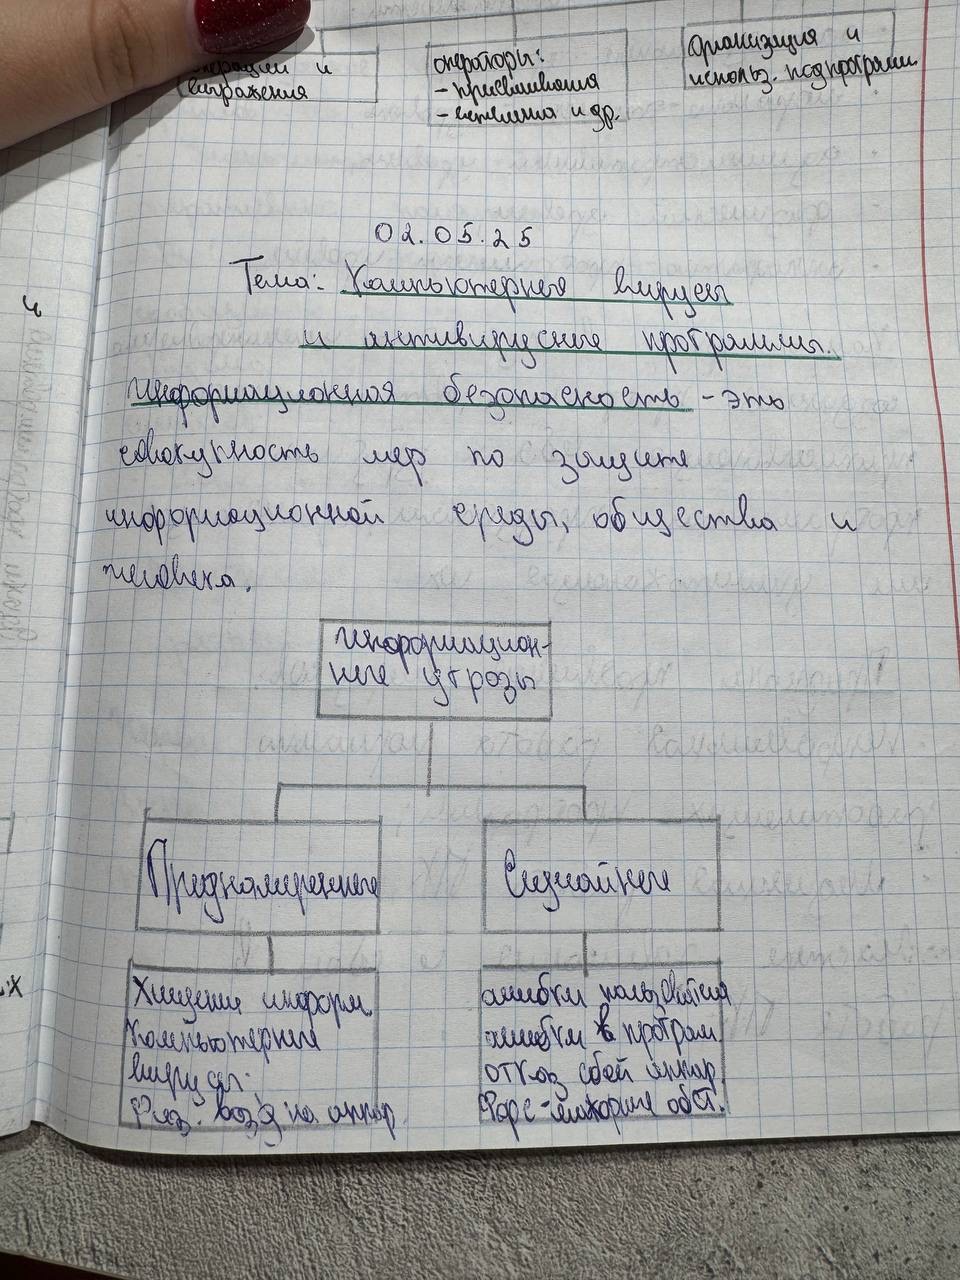 операции и
выражения
операторы:
- присваивания
- ветвления и др.
Организация и
использ. подпрограмм
02.05.25
Тема: Компьютерные вирусы
и антивирусные программы.
Информационная безопасность - это
совокупность мер по защите
информационной среды, общества и
человека.
Информацион-
ные угрозы
Преднамеренные
Случайные
Хищение информ.
Компьютерные
вирусы
Физ. возд на аппар
ошибки пользователя
ошибки в програм
отказ сбой аппар
Форс-мажорные обст.